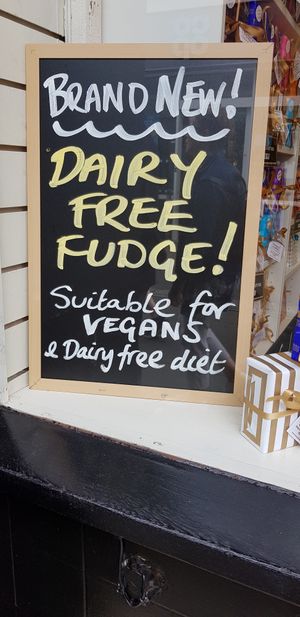 BRAND NEW!
DAIRY
FREE
FUDGE!
Suitable for
VEGANS
& Dairy free diet